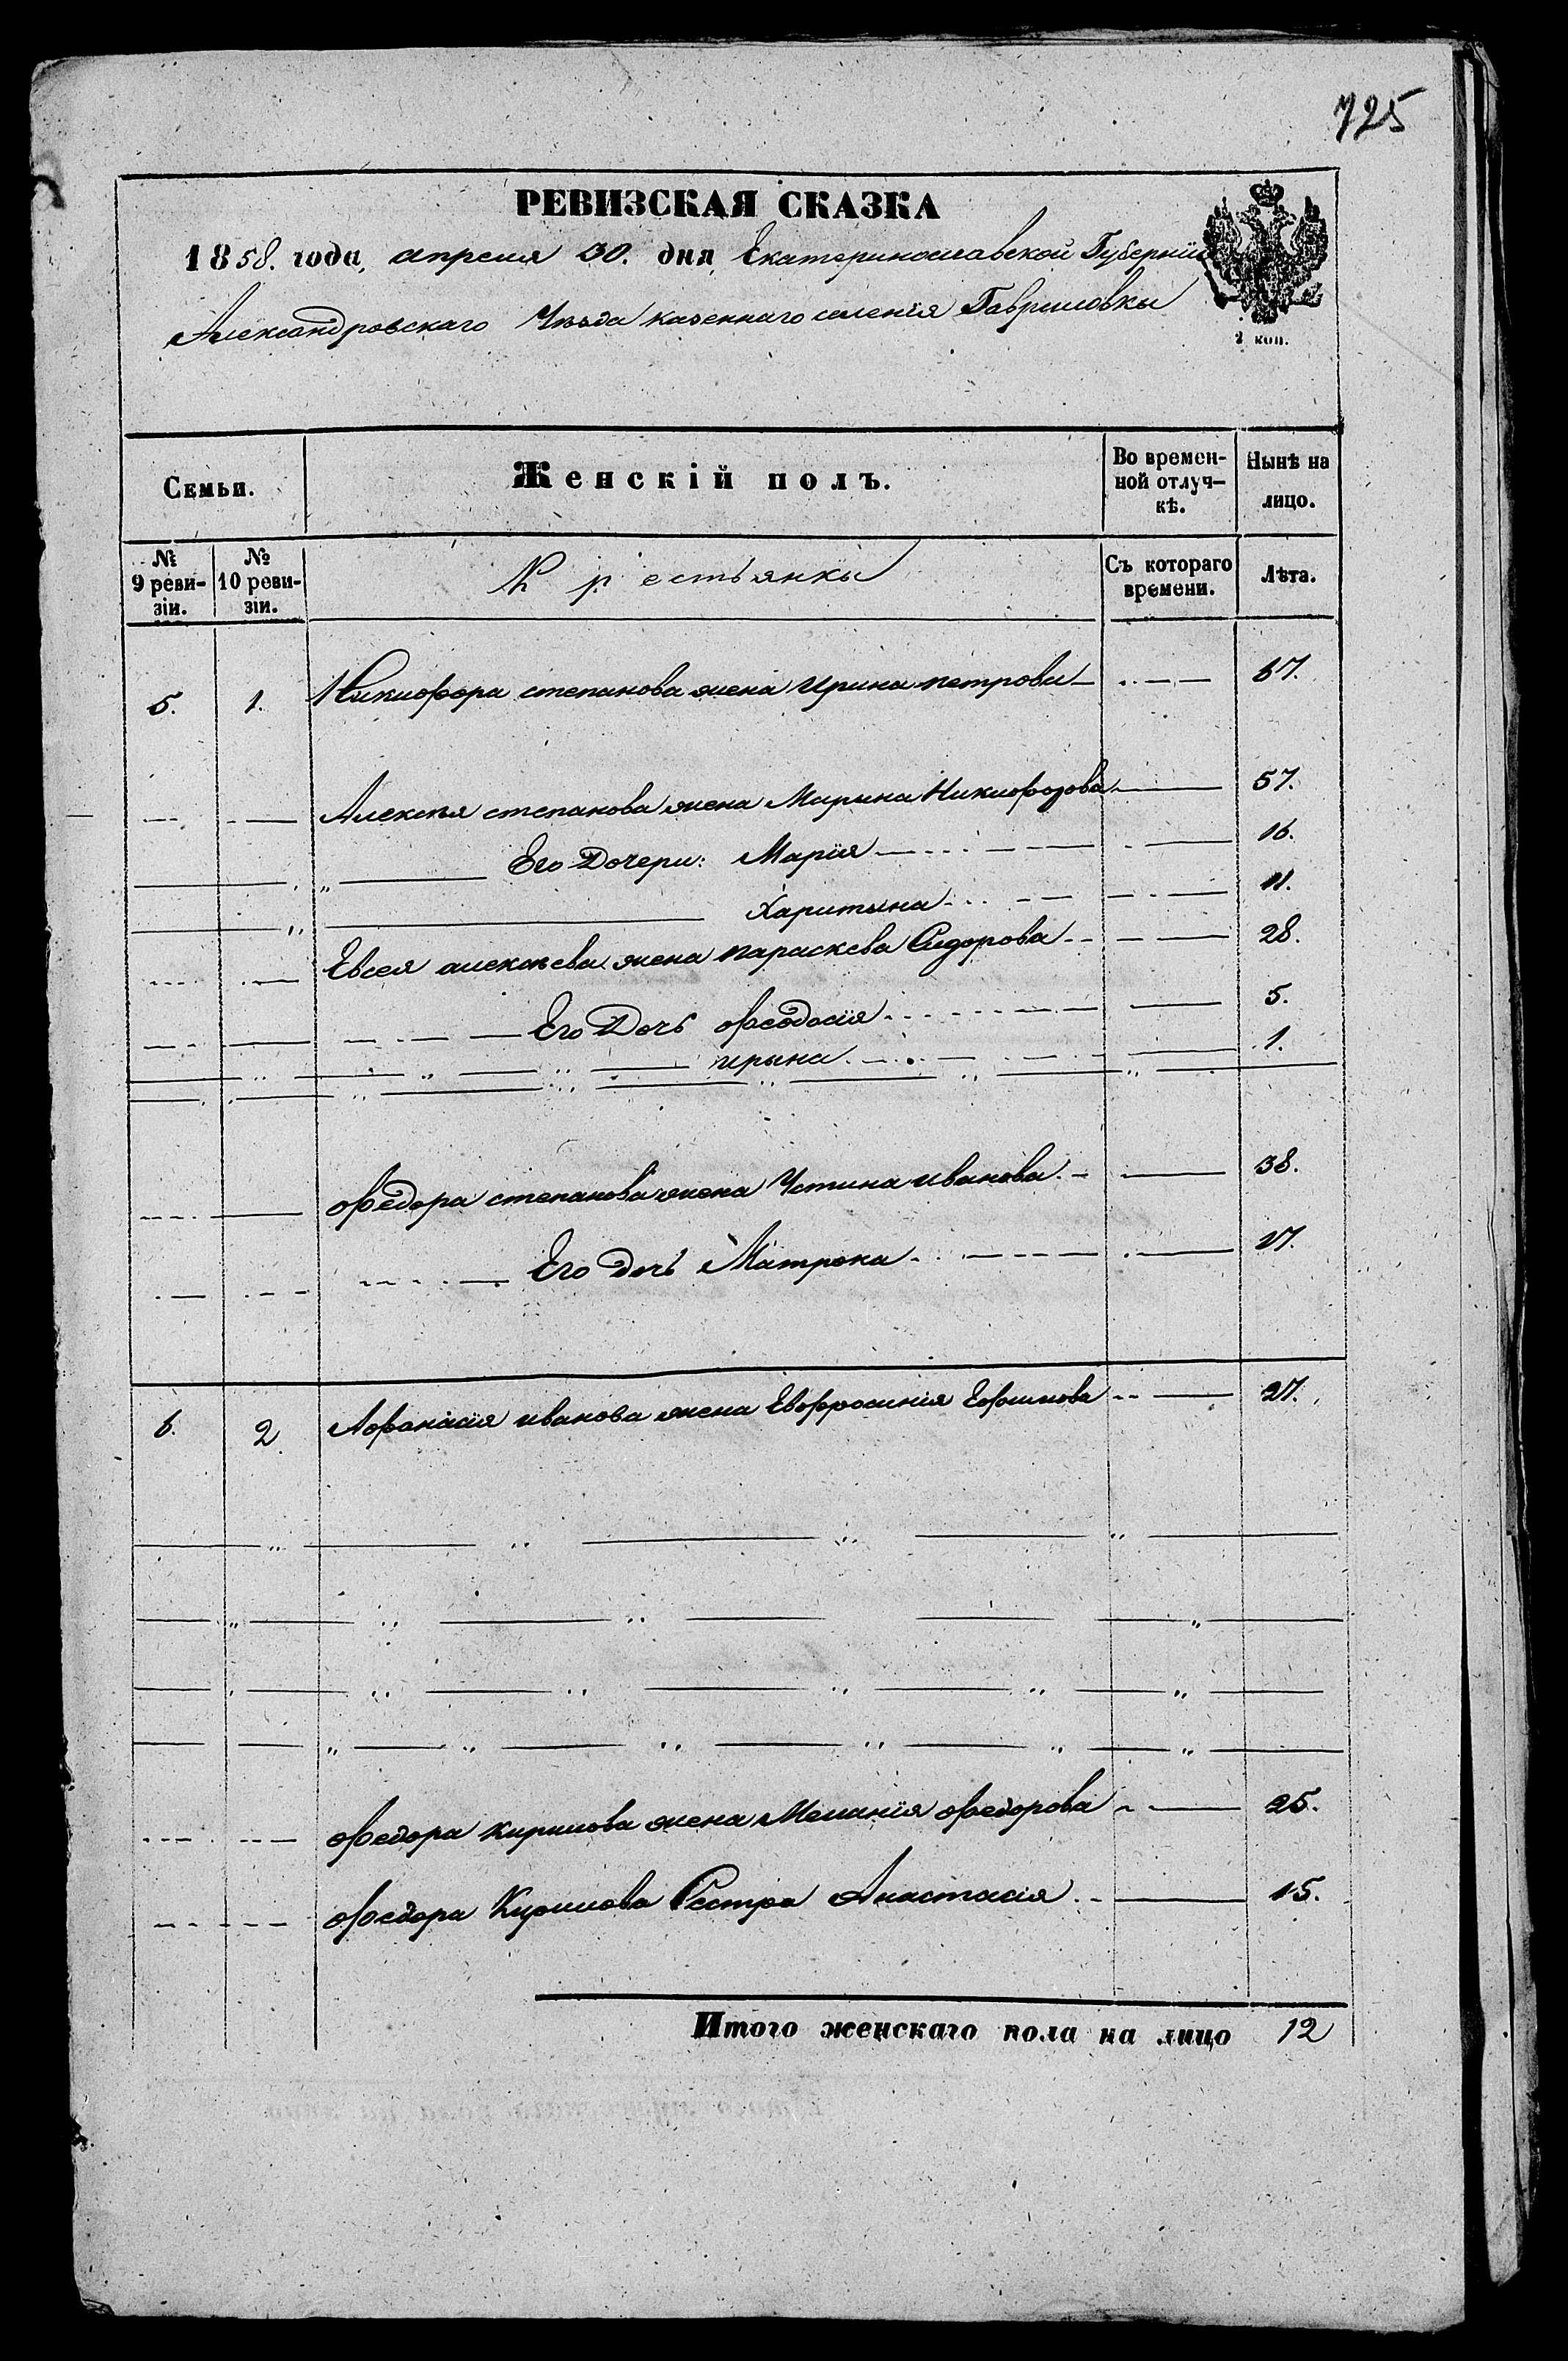 725
РЕВИЗСКАЯ СКАЗКА
1858. года, апреля 30. дня, Екатеринославской Губерніи
Александровскаго Уѣзда казеннаго селенія Гавриловки
2 коп.
Семьи. Женскій полъ. Во времен-ной отлуч-кѣ. Нынѣ на лицо.
№ 9 реви-зіи. № 10 реви-зіи. Крестьянки Съ котораго времени. Лѣта.
5. 1. Никифора степанова жена Ирина петрова 67.
Алексѣя степанова жена Марина Никифорова 57.
Его Дочери: Марія 16.
Харитына 11.
Евсея алексѣева жена параскева Сидорова 28.
Его Дочь Феодосія 5.
ирына 1.
Федора степанова жена Устина иванова 38.
Его дочь Матрона 17.
6. 2 Афанасія иванова жена Евфросинія Ефимова 27.
Федора кирилова жена Меланія Федорова 25.
Федора Кирилова Сестра Анастасія 15.
Итого женскаго пола на лицо 12